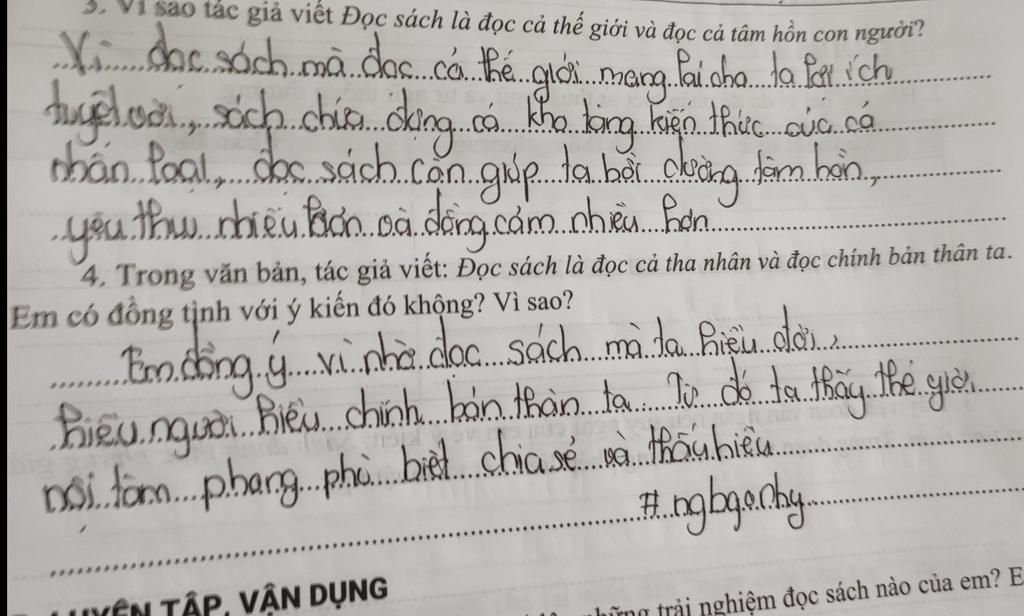 3. Vì sao tác giả viết Đọc sách là đọc cả thế giới và đọc cả tâm hồn con người?
Vì đọc sách mà đọc cả thế giới mang lại cho ta lợi ích
tuyệt vời, sách chứa đựng cả kho tàng kiến thức của cả
nhân loại, đọc sách còn giúp ta bồi dưỡng tâm hồn,
yêu thw nhiều hơn và đồng cảm nhiều hơn
4. Trong văn bản, tác giả viết: Đọc sách là đọc cả tha nhân và đọc chính bản thân ta.
Em có đồng tình với ý kiến đó không? Vì sao?
Em đồng ý vì nhờ đọc sách mà ta hiểu đời,
hiểu người hiểu chính bản thân ta. Từ đó ta thấy thế giới
nội tâm phong phú biết chia sẻ và thấu hiểu
# ngbgonhy
LUYỆN TẬP, VẬN DỤNG
những trải nghiệm đọc sách nào của em? E